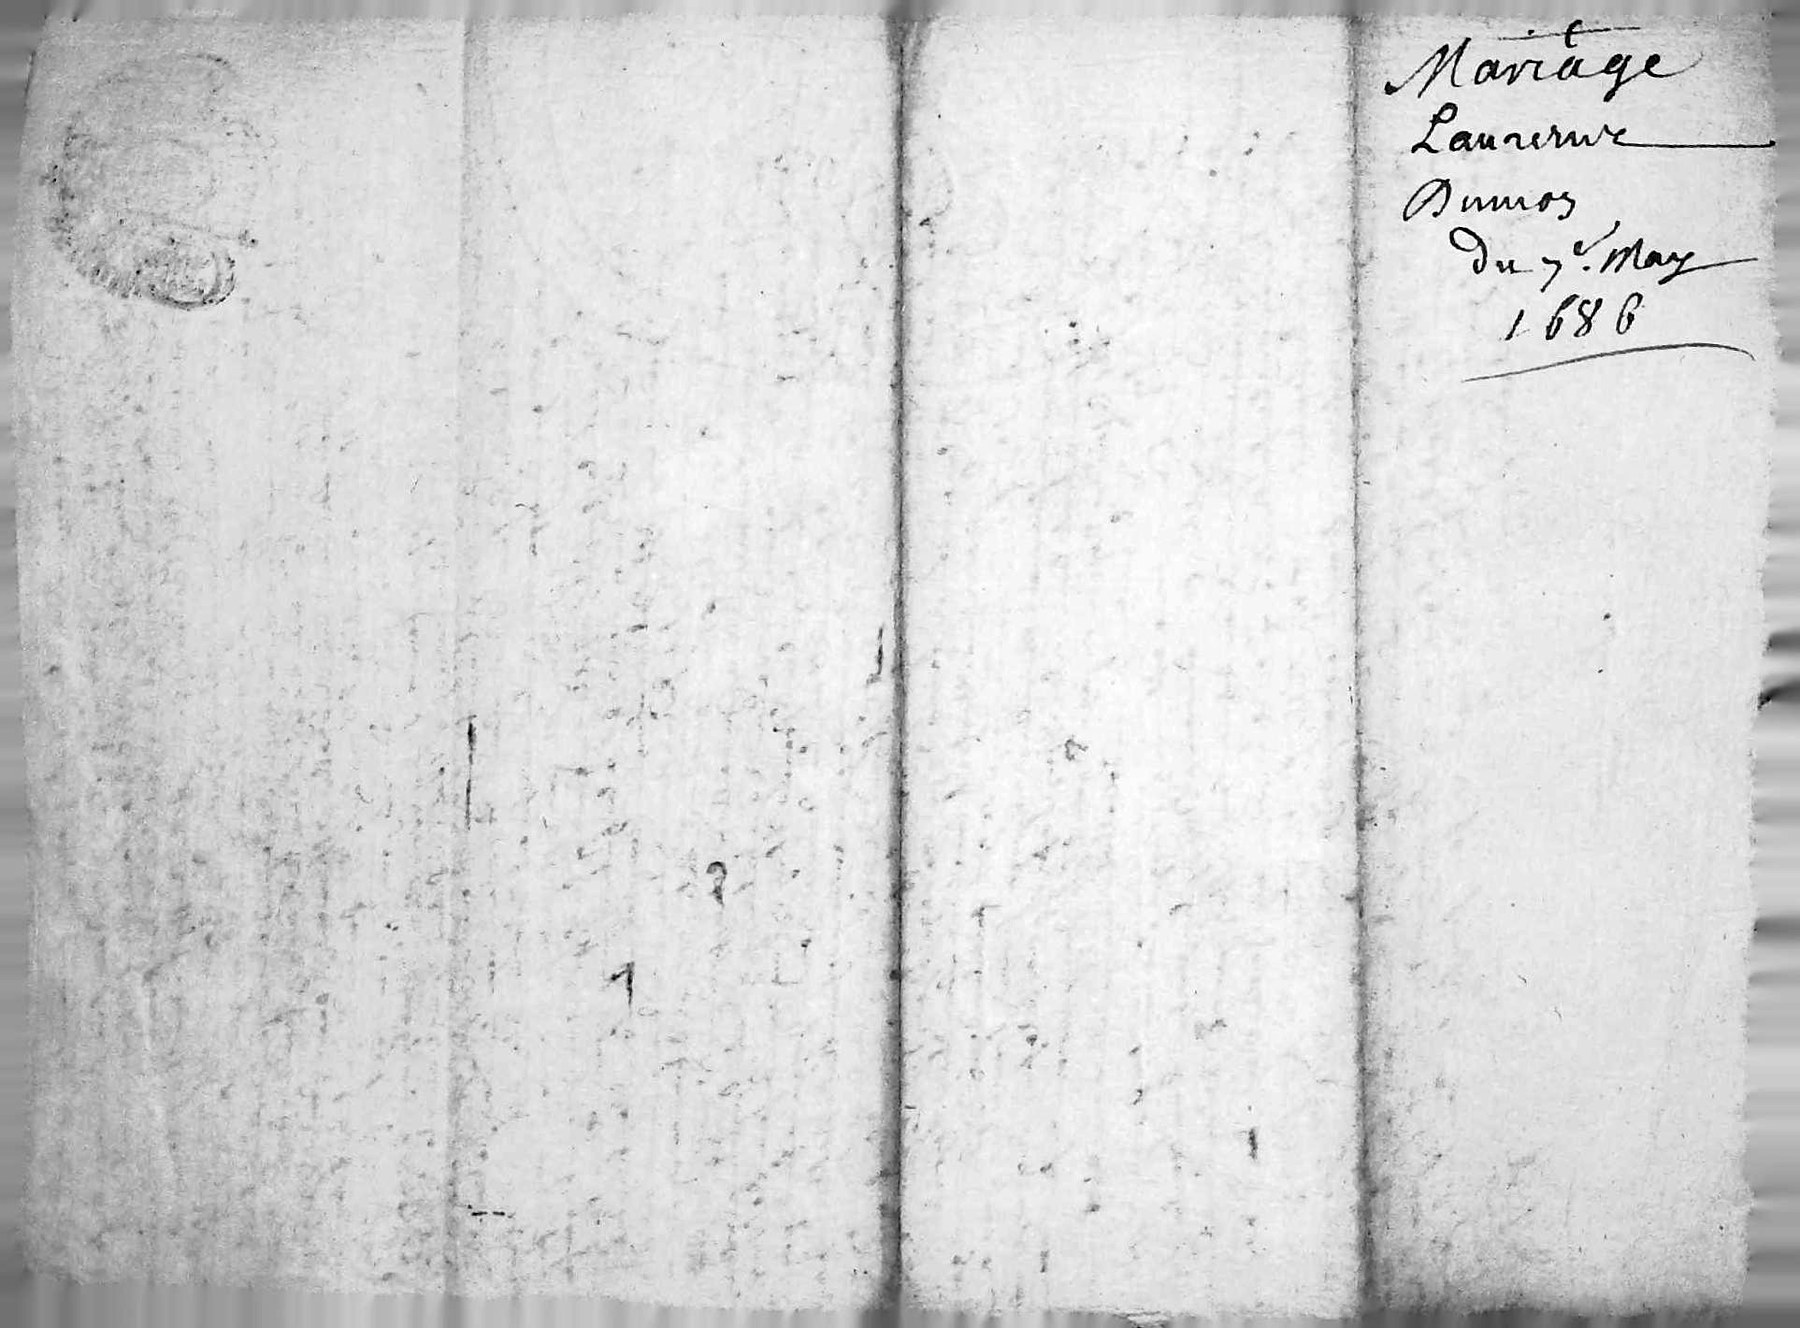 Mariage
Laurence
Dumos
du 7e. May
1686